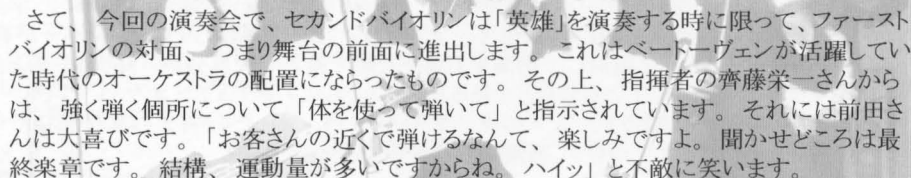 さて、今回の演奏会で、セカンドバイオリンは「英雄」を演奏する時に限って、ファースト
バイオリンの対面、つまり舞台の前面に進出します。これはベートーヴェンが活躍してい
た時代のオーケストラの配置にならったものです。その上、指揮者の齊藤栄一さんから
は、強く弾く個所について「体を使って弾いて」と指示されています。それには前田さ
んは大喜びです。「お客さんの近くで弾けるなんて、楽しみですよ。聞かせどころは最
終楽章です。結構、運動量が多いですからね。ハイッ」と不敵に笑います。